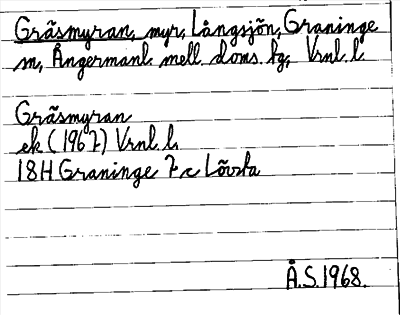 Gräsmyran, myr, Långsjön, Graninge
sn, Ångermanl. mell. doms. hg, Vrnl. l.
Gräsmyran
ek (1967) Vrnl. l.
18H Graninge 7 c Lövsta
Å.S. 1968.